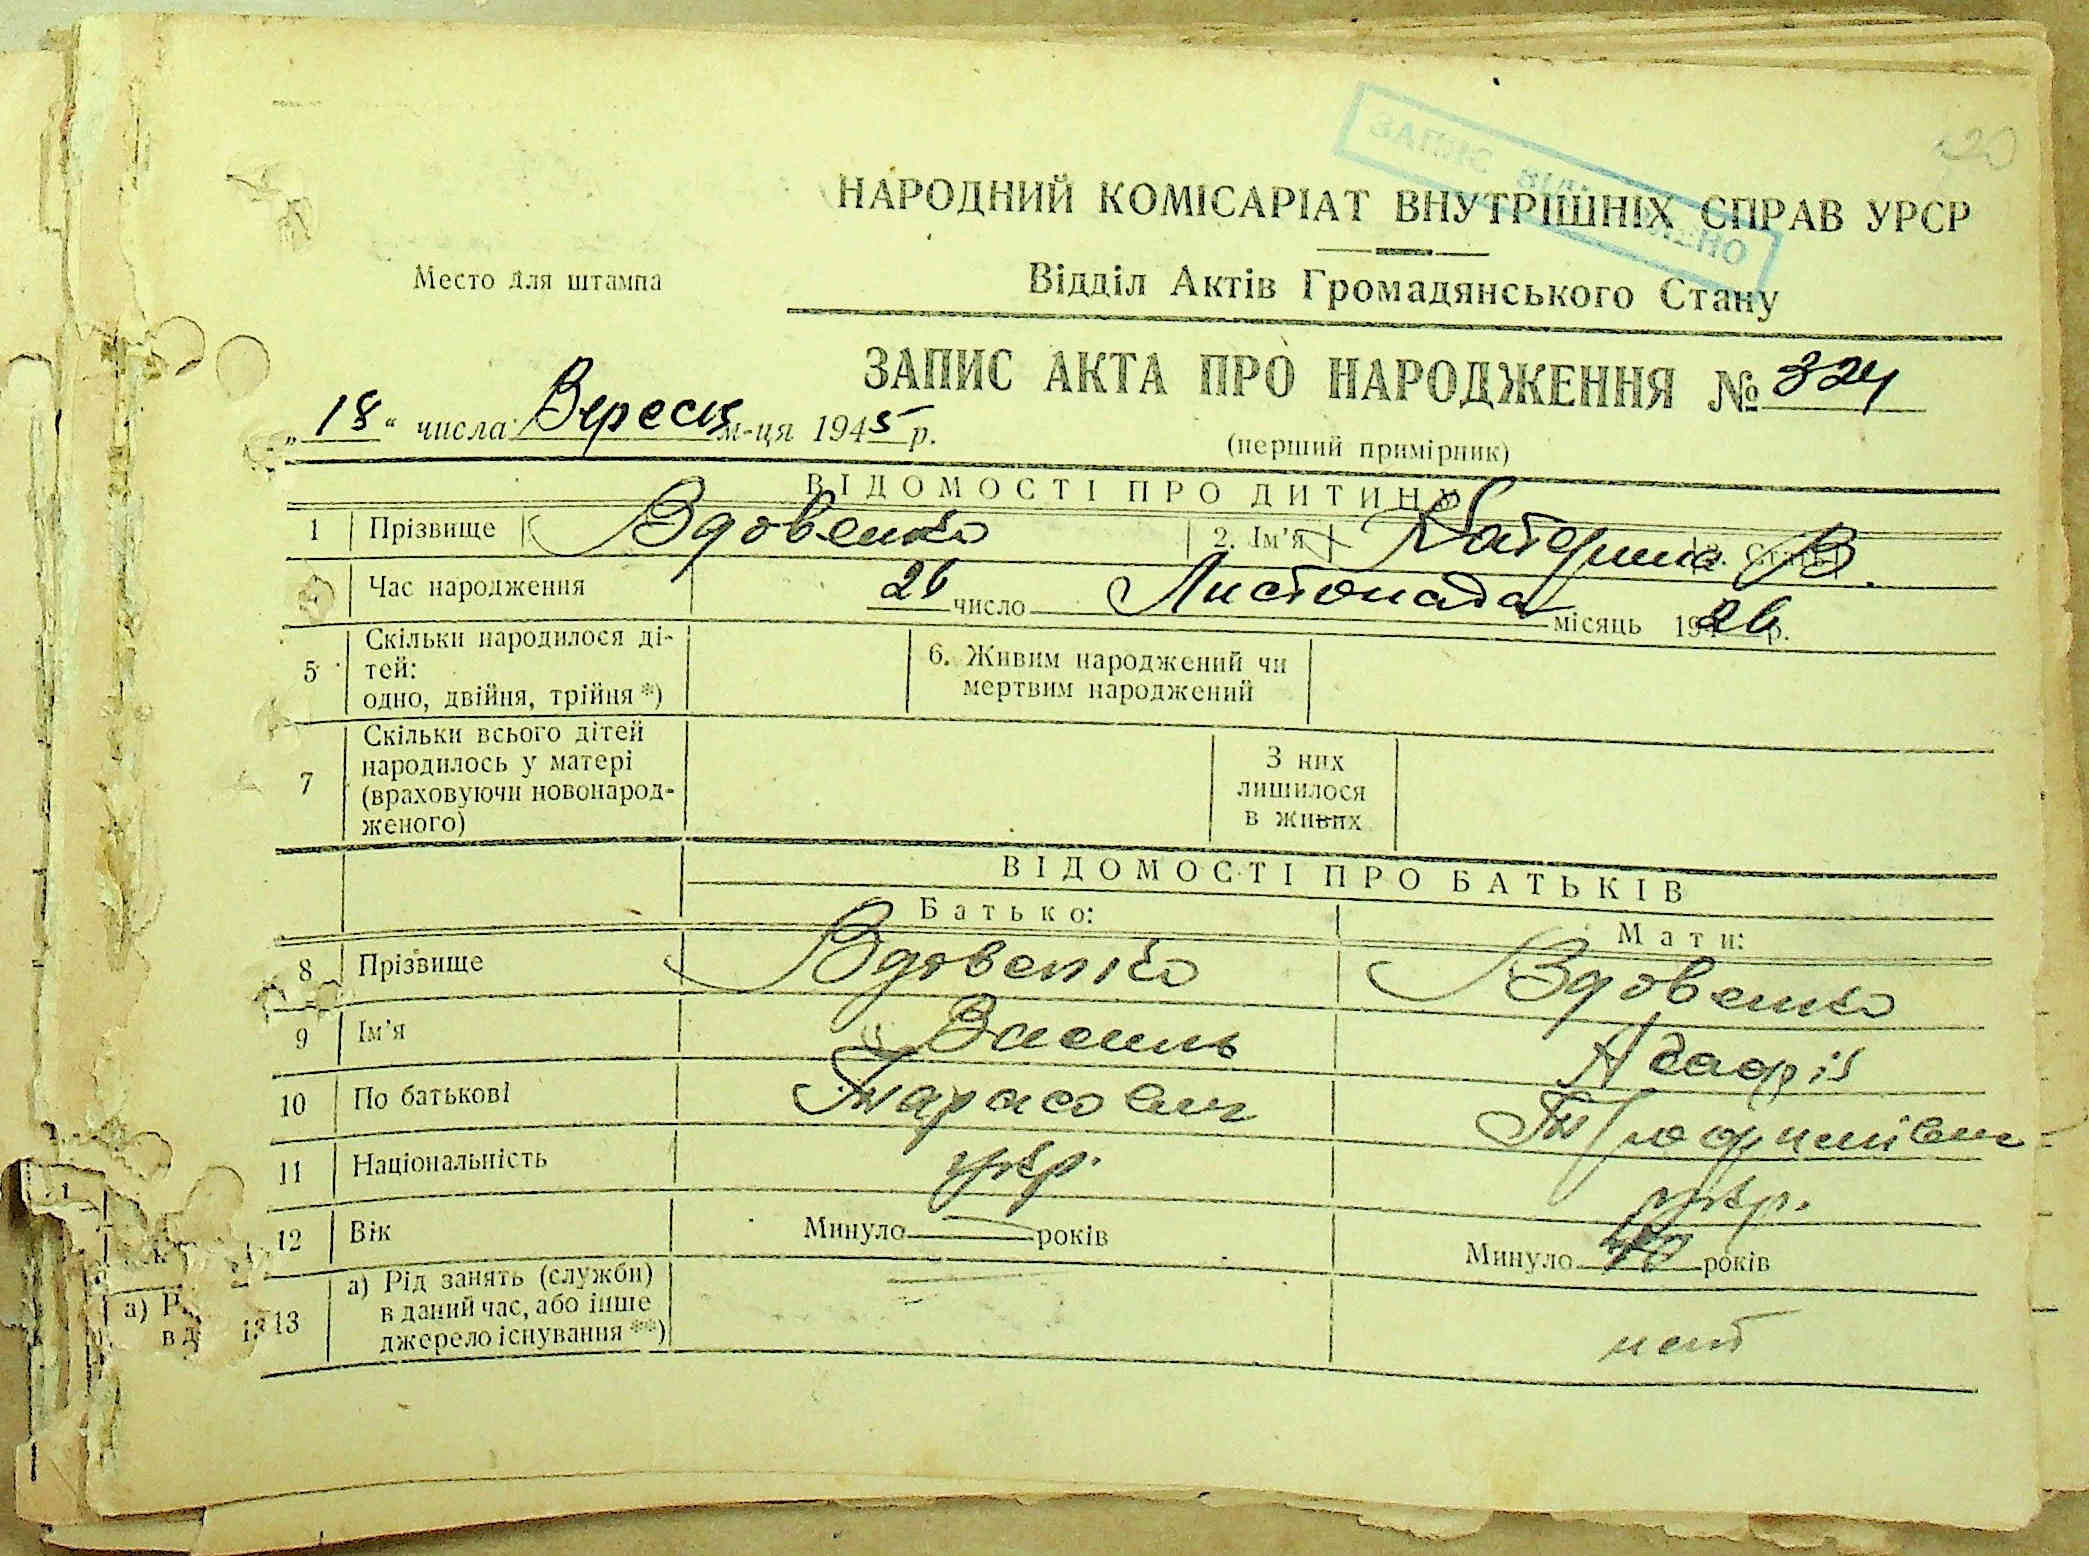 20
ЗАПИС ВІД НО
НАРОДНИЙ КОМІСАРІАТ ВНУТРІШНІХ СПРАВ УРСР
Место для штампа
Відділ Актів Громадянського Стану
ЗАПИС АКТА ПРО НАРОДЖЕННЯ № 324
„18“ числа Вересця м-ця 1945 р.
(перший примірник)
ВІДОМОСТІ ПРО ДИТИНУ
1 Прізвище Вдовенко 2. Ім'я Катерина В. 3. Стать
Час народження 26 число Листопада місяць 19426 р.
5 Скільки народилося ді-
тей:
одно, двійня, трійня *)
6. Живим народжений чи
мертвим народжений
7 Скільки всього дітей
народилось у матері
(враховуючи новонарод-
женого)
З них
лишилося
в живих
ВІДОМОСТІ ПРО БАТЬКІВ
Батько: Мати:
8 Прізвище Вдовенко Вдовенко
9 Ім'я Василь Агафія
10 По батькові Тарасович
11 Національність укр. укр.
12 Вік Минуло років Минуло 40 років
13 а) Рід занять (служби)
в даний час, або інше
джерело існування **)
а) Р
в д